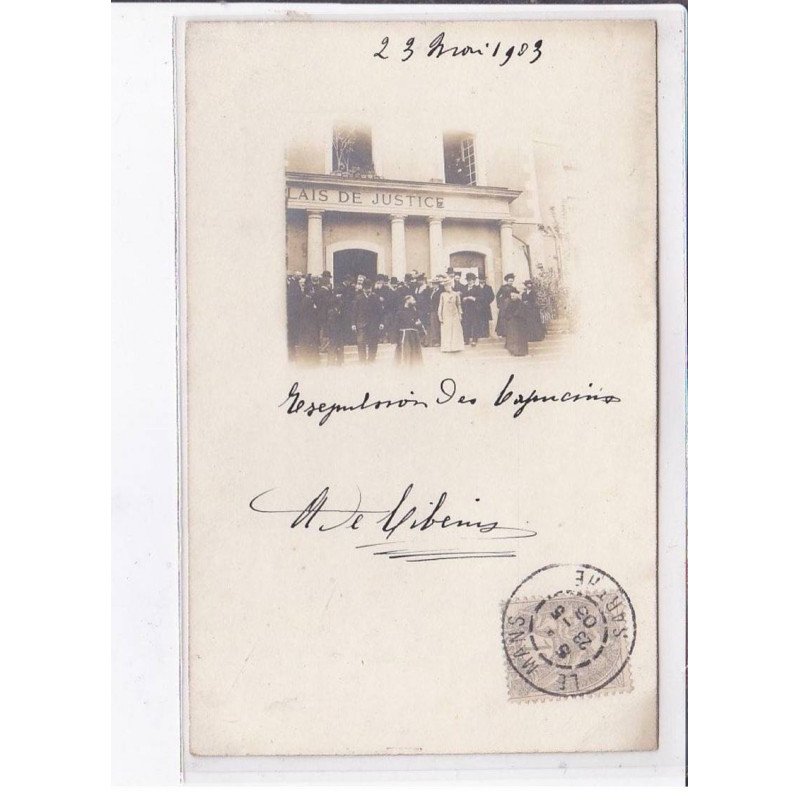 23 Mai 1903
LAIS DE JUSTICE
Expulsion des Capucins
A de
LE MANS
SARTHE
23 - 5
03